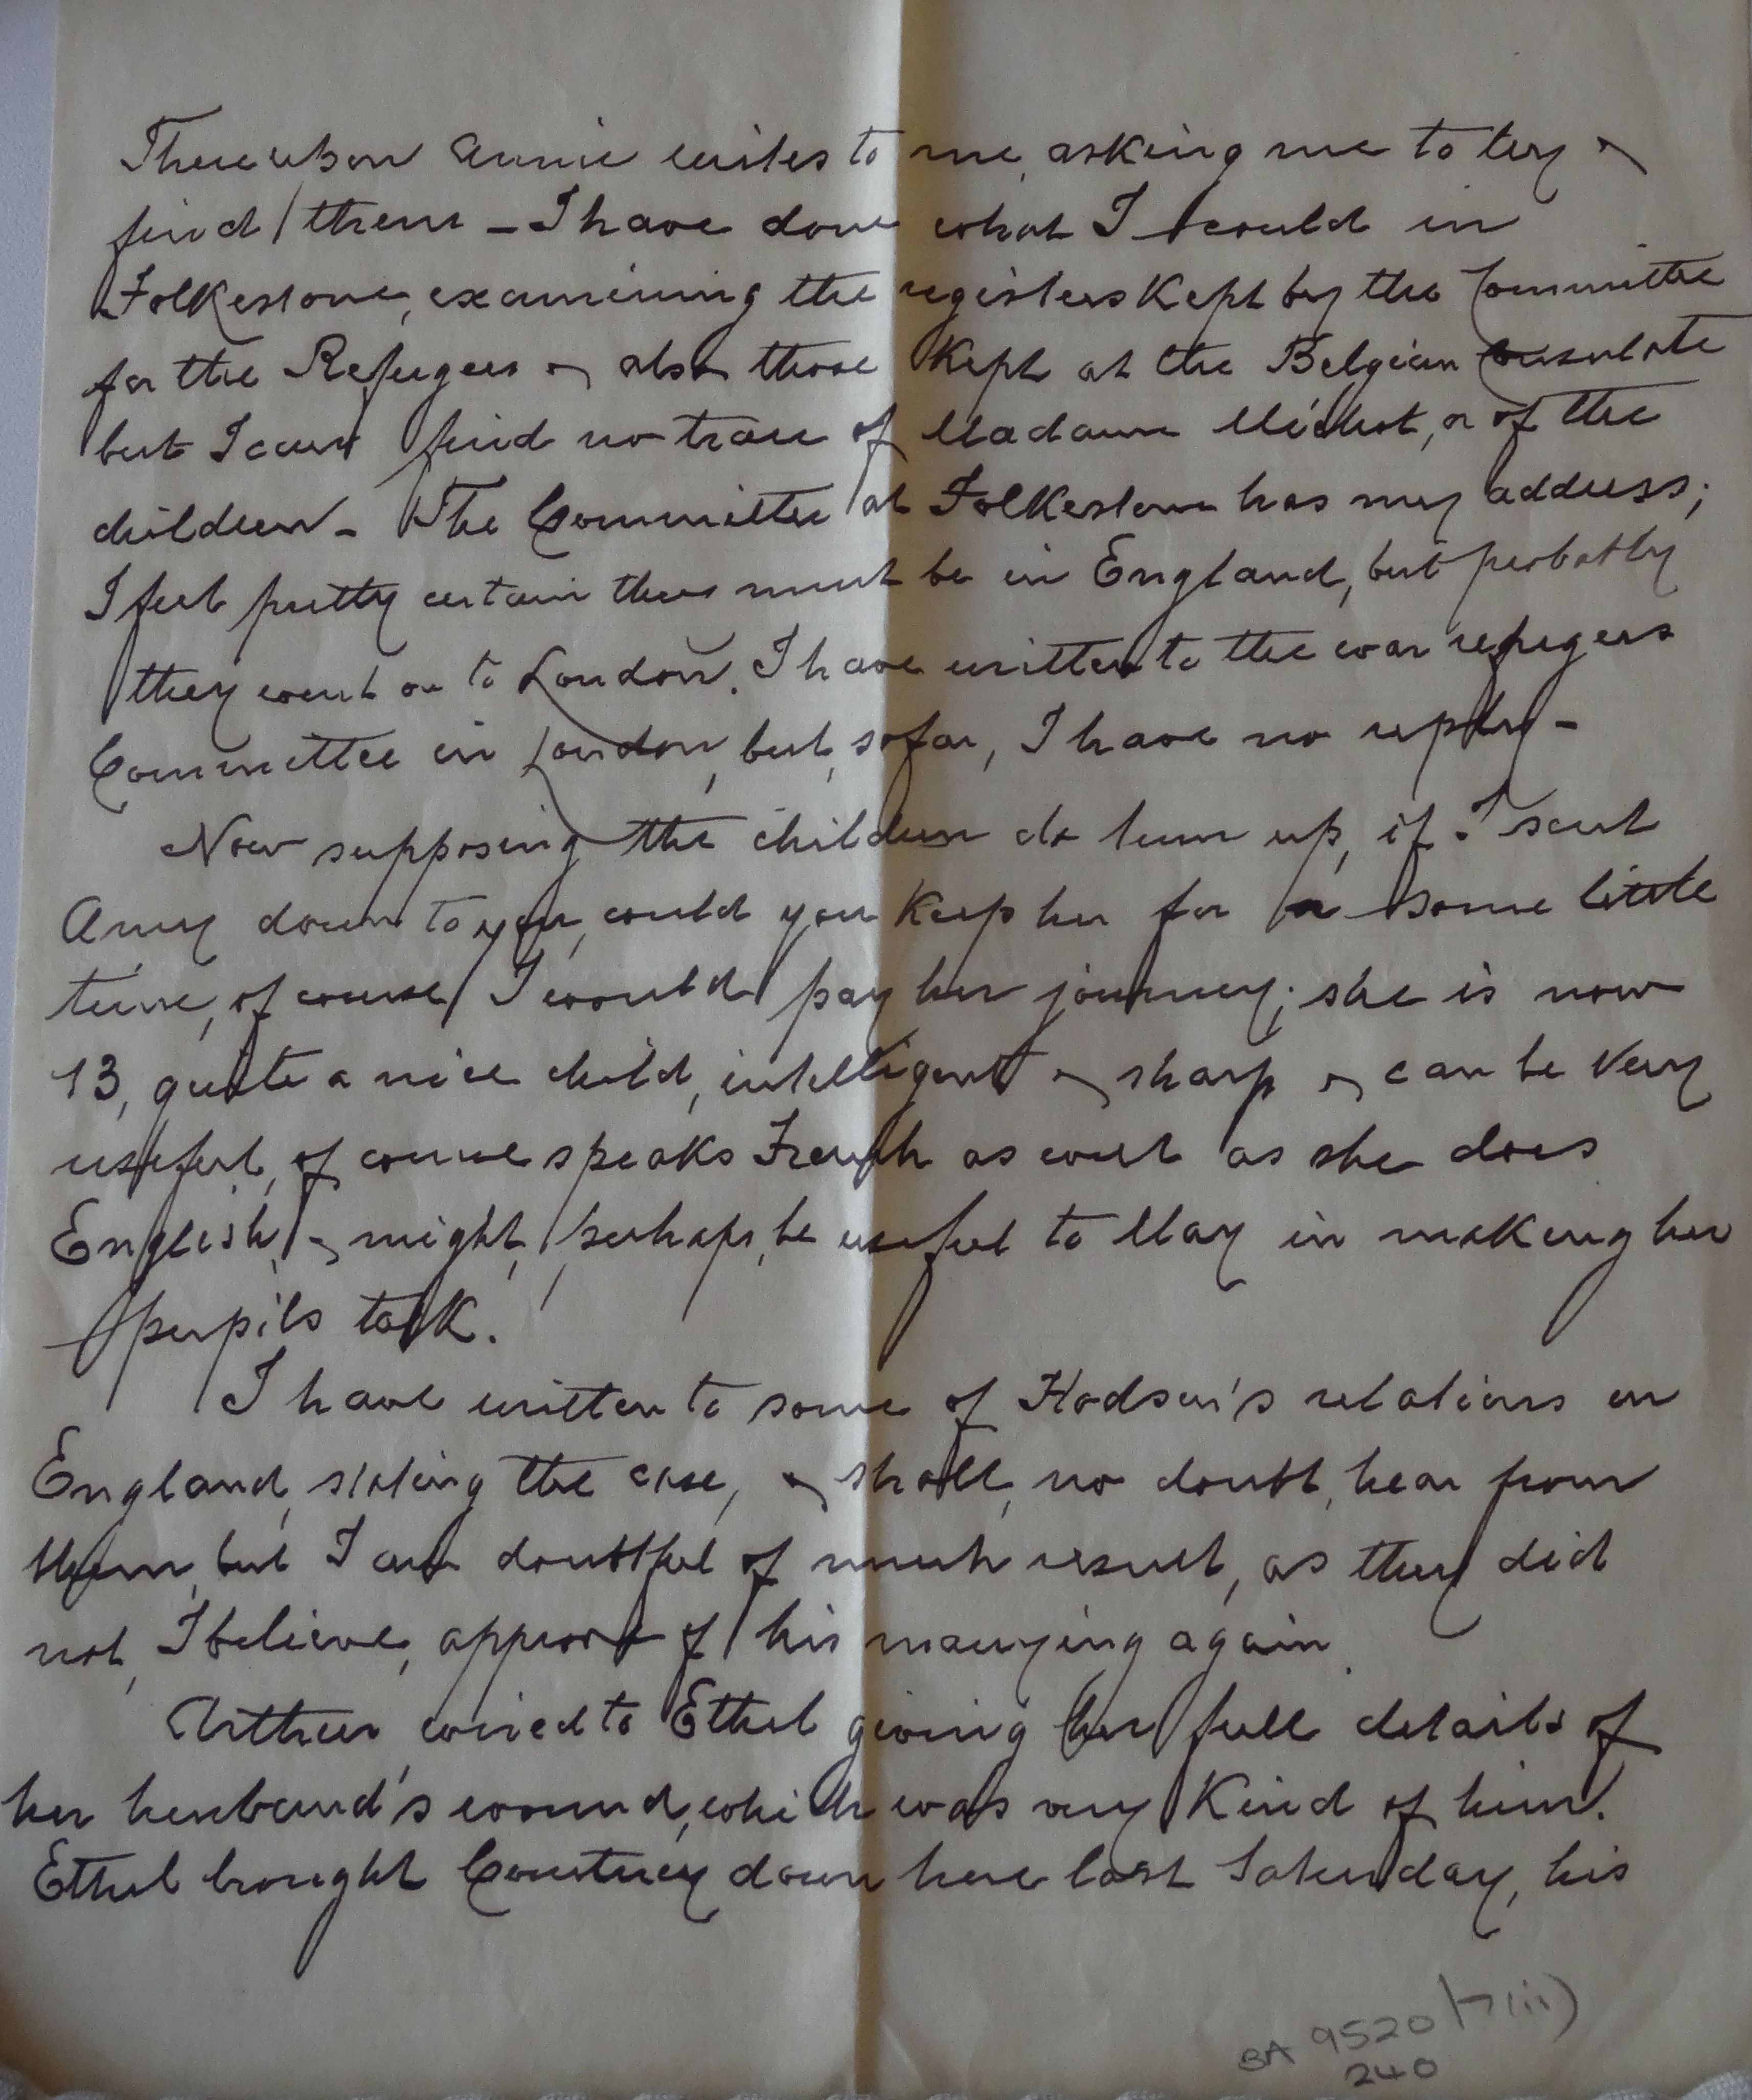 Thereupon Annie writes to me, asking me to try &
find them – I have done what I could in
Folkestone, examining the registers kept by the Committee
for the Refugees & also those kept at the Belgian Consulate
but I can find no trace of Madame Michot, or of the
children – The Committee at Folkestone has my address;
I feel pretty certain they must be in England, but probably
they went on to London. I have written to the war refugees
Committee in London, but, so far, I have no reply –
Now supposing the children do turn up, if I sent
Amy down to you, could you keep her for some little
time, of course I would pay her journey; she is now
13, quite a nice child, intelligent & sharp & can be very
useful, of course speaks French as well as she does
English, & might, perhaps, be useful to May in making her
pupils talk.
I have written to some of Hodson's relations in
England, stating the case, & shall, no doubt, hear from
them, but I am doubtful of much result, as they did
not, I believe, approve of his marrying again.
Arthur wired to Ethel giving her full details of
her husband's wound, which was very kind of him.
Ethel brought Courtney down here last Saturday, his
BA 9520/7(ii)
240